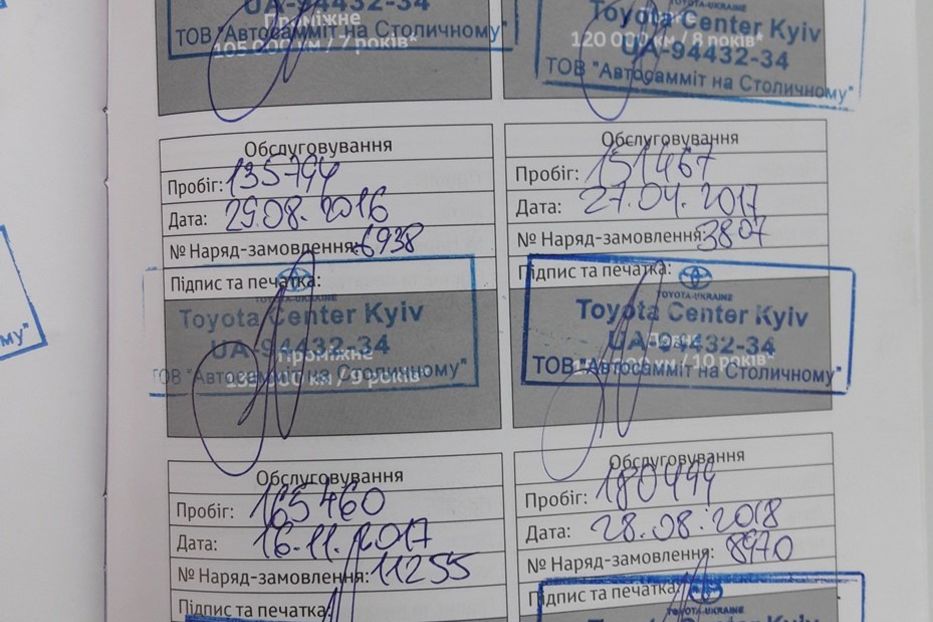 UA-94432-34
Проміжне
ТОВ "Автосамміт на Столичному"
105 000 км / 7 років*
TOYOTA-UKRAINE
Toyota Center Kyiv
120 000 км / 8 років*
UA-94432-34
ТОВ "Автосамміт на Столичному"
Обслуговування
Пробіг: 135794
Дата: 29.08.2016
№ Наряд-замовлення: 6938
Підпис та печатка:
TOYOTA-UKRAINE
Toyota Center Kyiv
UA-94432-34
Проміжне
ТОВ "Автосамміт на Столичному"
км / 9 років*
Обслуговування
Пробіг: 151467
Дата: 27.04.2017
№ Наряд-замовлення: 3807
Підпис та печатка:
TOYOTA-UKRAINE
Toyota Center Kyiv
UA-94432-34
км / 10 років*
ТОВ "Автосамміт на Столичному"
му"
Обслуговування
Пробіг: 165460
Дата: 16.11.2017
№ Наряд-замовлення: 11255
Підпис та печатка:
Обслуговування
Пробіг: 180499
Дата: 28.08.2018
№ Наряд-замовлення: 8970
Підпис та печатка:
TOYOTA-UKRAINE
Toyota Center Kyiv